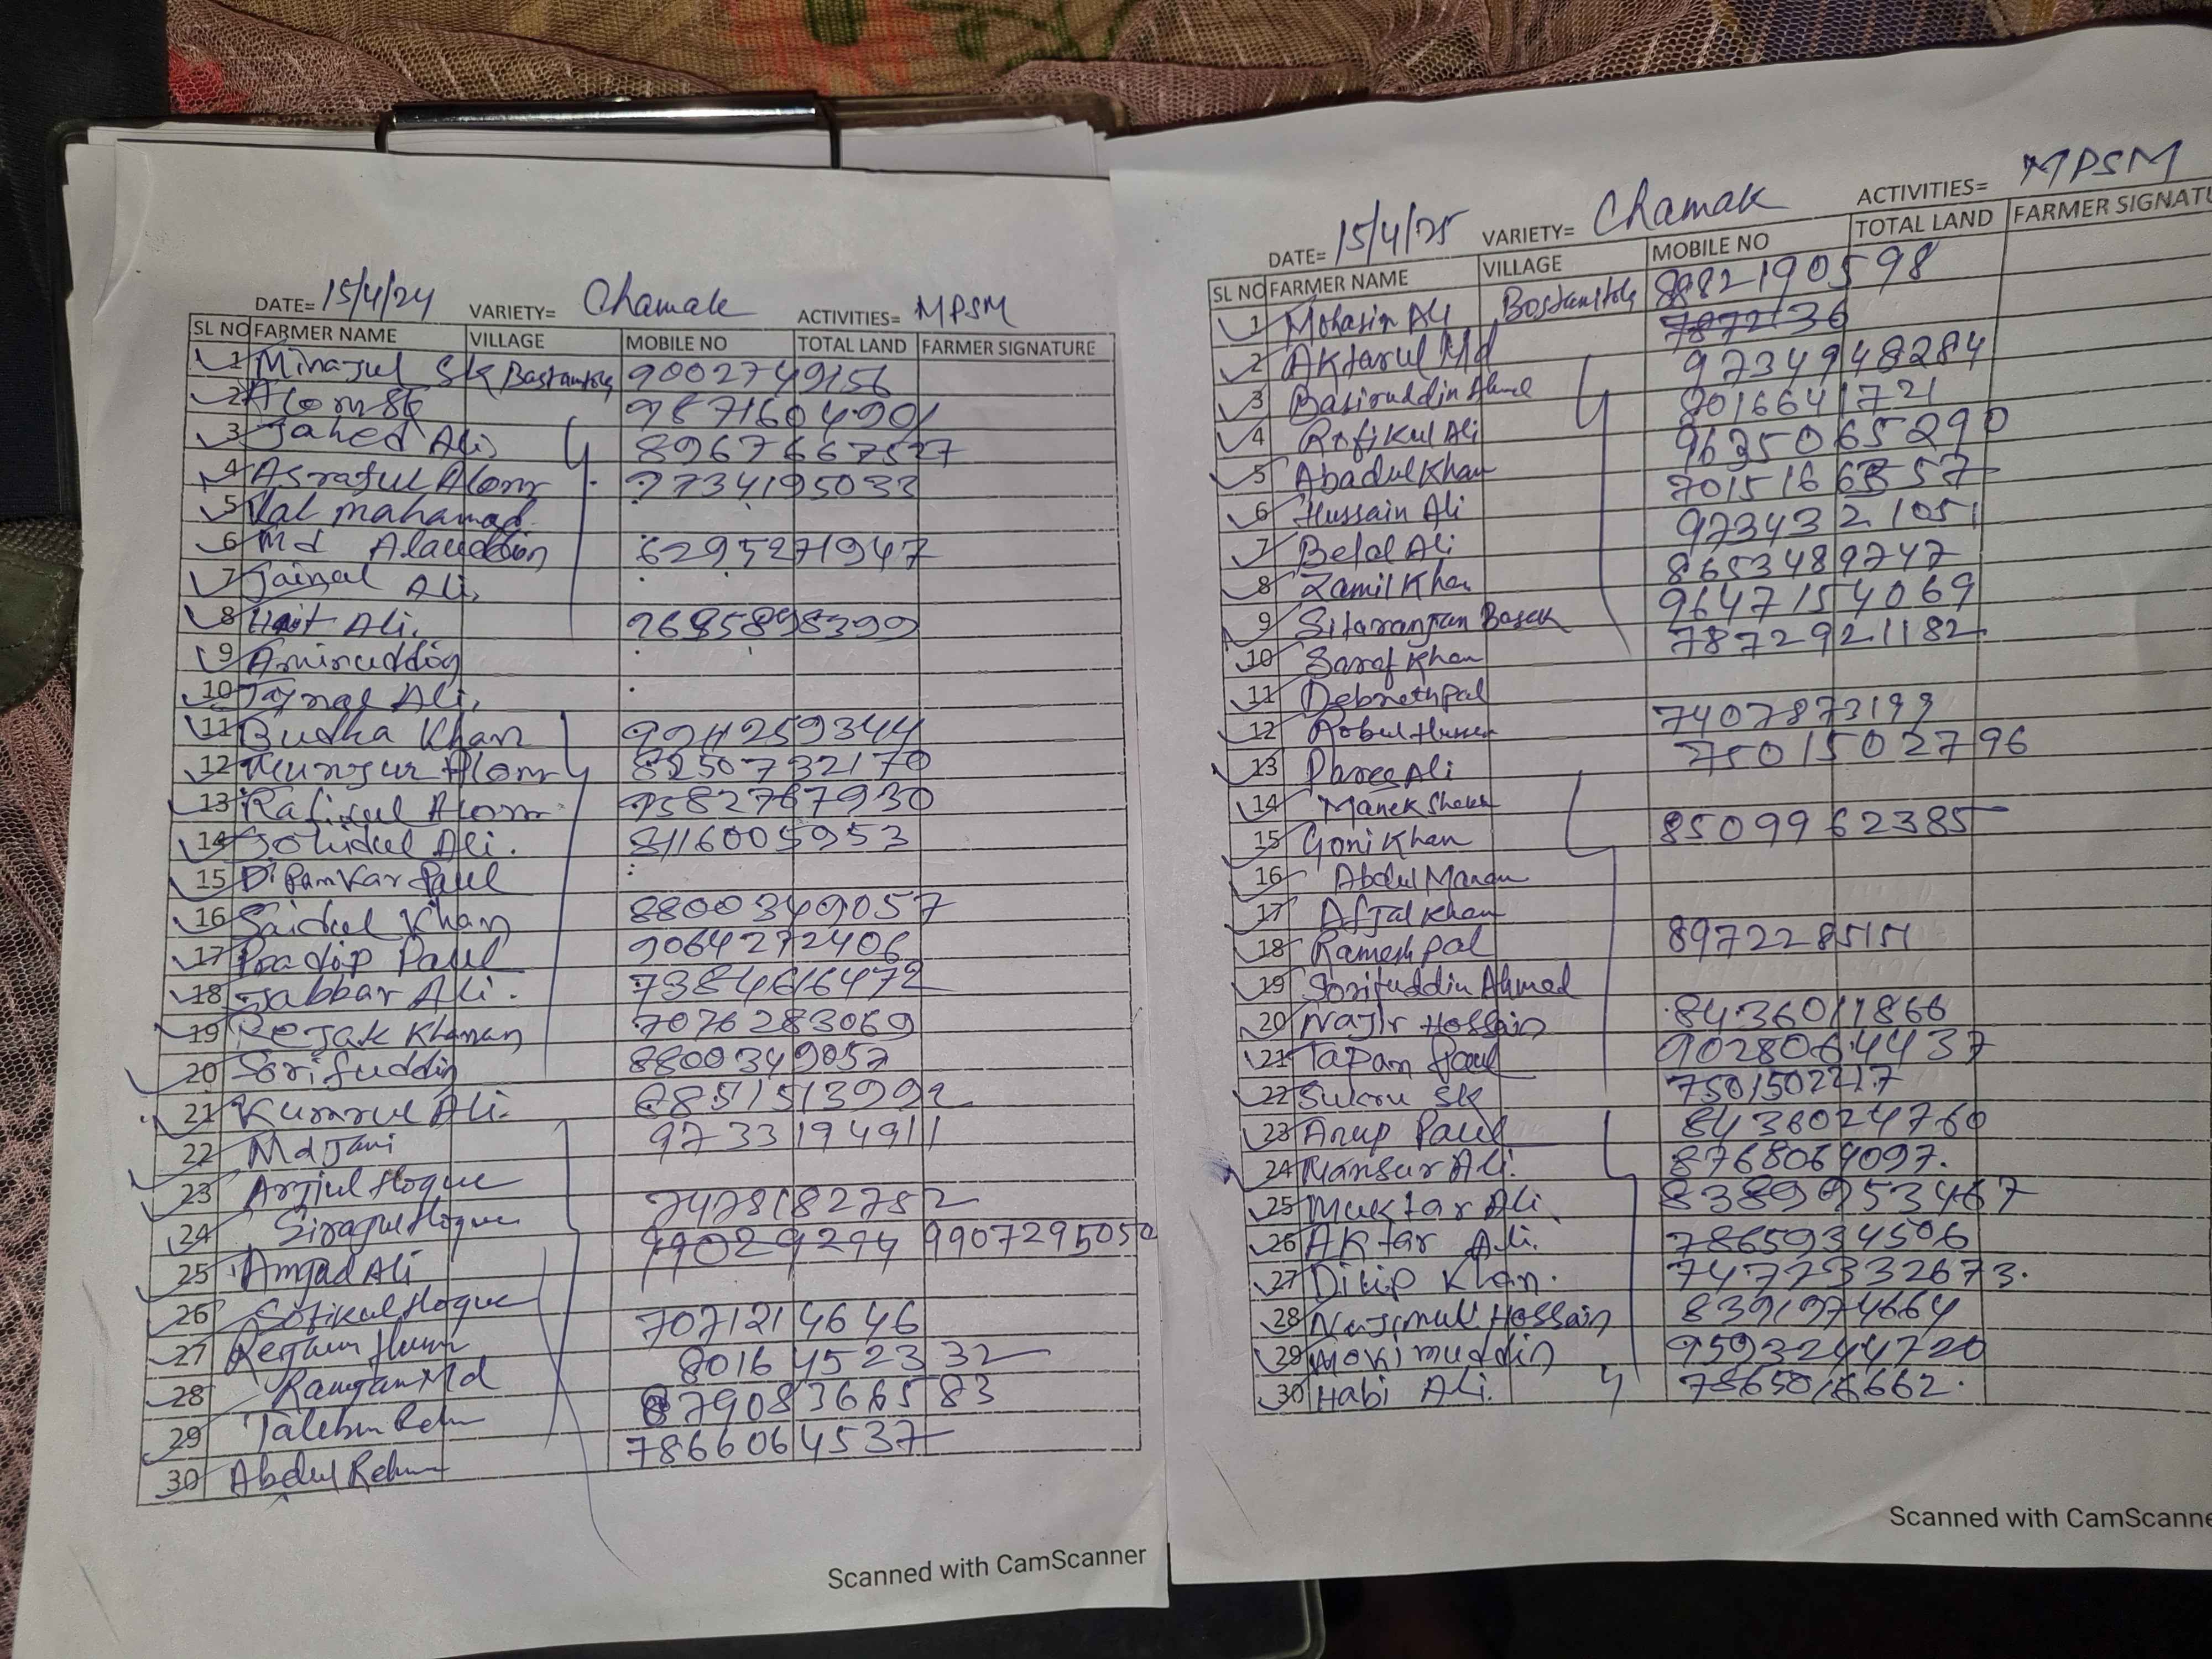 DATE= 15/4/24 VARIETY= Chamak ACTIVITIES= MPSM
SL NO FARMER NAME VILLAGE MOBILE NO TOTAL LAND FARMER SIGNATURE
1 Minajul SK Bastantola 9002749156
2 Alom SK 9871604901
3 Jahed Ali 8967667527
4 Asraful Alom 9734195033
5 Lal mahamad
6 Md Alauddin 6295271947
7 Jainal Ali,
8 Ali. 9685898399
9 Amiruddin
10 Tajnal Ali,
11 Budha Khan 259344
12 Munjur Alom 8250732170
13 Rafikul Alom 9582767930
14 Johidul Ali. 8116005953
15 Dipamkar Paul
16 Saidul Khan 8800349057
17 Pradip Paul 9064272406
18 Jabbar Ali. 7384616472
19 Rejak Khanan 7076283069
20 Sorifuddin 8800349057
21 Kumrul Ali. 8515139992
22 Md Jani 9733194911
23 Arjiul Hoque
24 Sirajul Hoque 7478182752
25 Amjad Ali 9907295050
26 Sofikul Hoque
27 7071214646
28 Ramjan Md 8016452332
29 87908366583
30 Abdul Rehm 7866064537
Scanned with CamScanner
DATE= 15/4/25 VARIETY= Chamak ACTIVITIES= MPSM
SL NO FARMER NAME VILLAGE MOBILE NO TOTAL LAND FARMER SIGNATU
1 Mohasin Ali Bostantola 882190598
7872136
2 Aktarul Md 9734948284
3 Basiruddin Ahmed 8016641721
4 Rofikul Ali 9635065290
5 Abadul Khan 7015166357
6 Hussain Ali 9734321051
7 Belal Ali 8653489747
8 Zamil Khan 9647154069
9 Sitaranjan Basak 7872921182
10 Saraf Khan
11 Debnath pal
12 Robul 7407873199
13 Ali 7501502796
14 Manek Shekh
15 Goni Khan 8509962385
16 Abdul Manan
17 Aftal Khan
18 Ramesh pal 8972228515
19 Sorifuddin Ahmed
20 Najir Hossain 8436011866
21 Tapan Paul 9028064437
22 Sukru SK 7501502217
23 Anup Paul 8438024760
24 Mansur Ali. 8768064097.
25 Muktar Ali 8389953467
26 Aktar Ali. 7865934506
27 Dilip Khan. 7472332673.
28 Najimul Hossain 8391974664
29 Mokimuddin 9593244720
30 Habi Ali. 7865016662.
Scanned with CamScanne